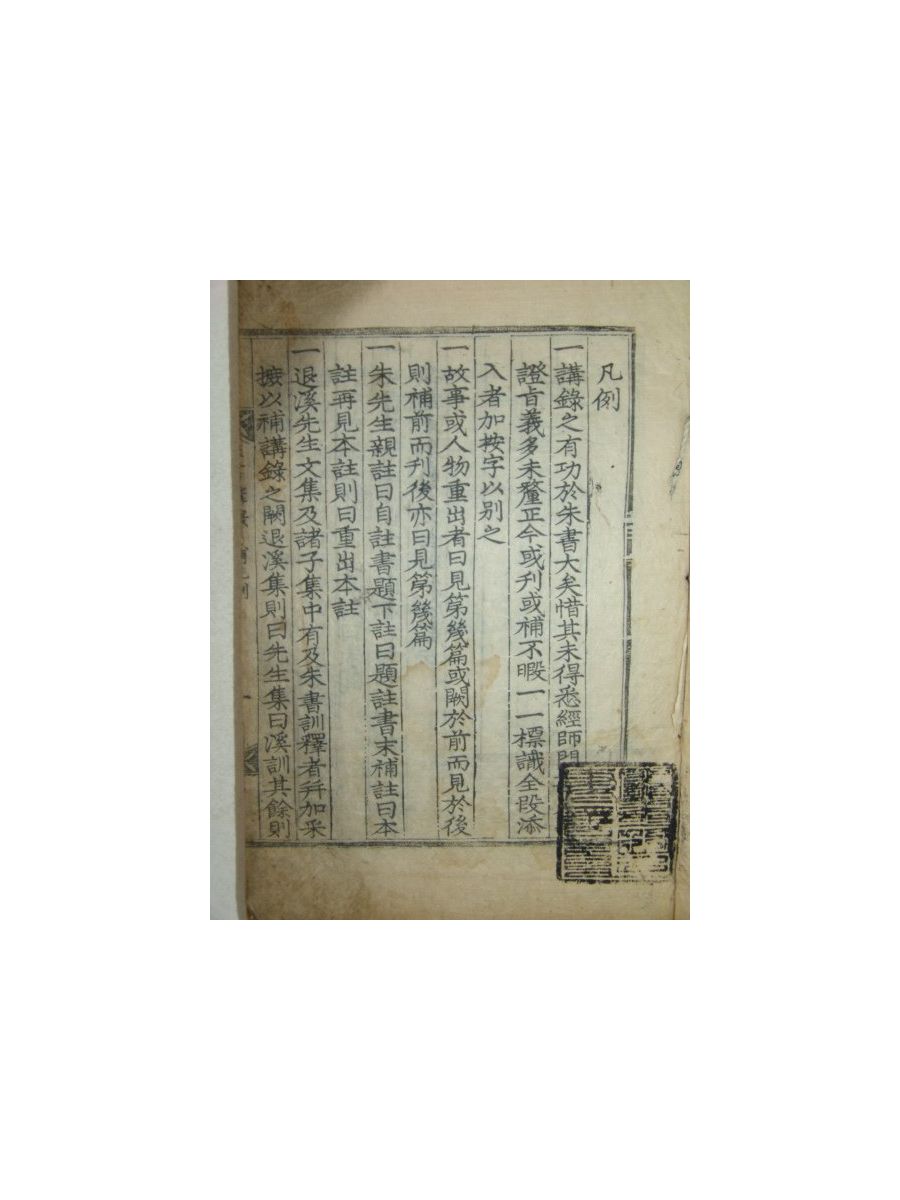 凡例
一講錄之有功於朱書大矣惜其未得悉經師門
證旨義多未釐正今或刊或補不暇一一標識全段添
入者加按字以别之
一故事或人物重出者曰見第幾篇或闕於前而見於後
則補前而刊後亦曰見第幾篇
一朱先生親註曰自註書題下註曰題註書末補註曰本
註再見本註則曰重出本註
一退溪先生文集及諸子集中有及朱書訓釋者幷加采
摭以補講錄之闕退溪集則曰先生集曰溪訓其餘則